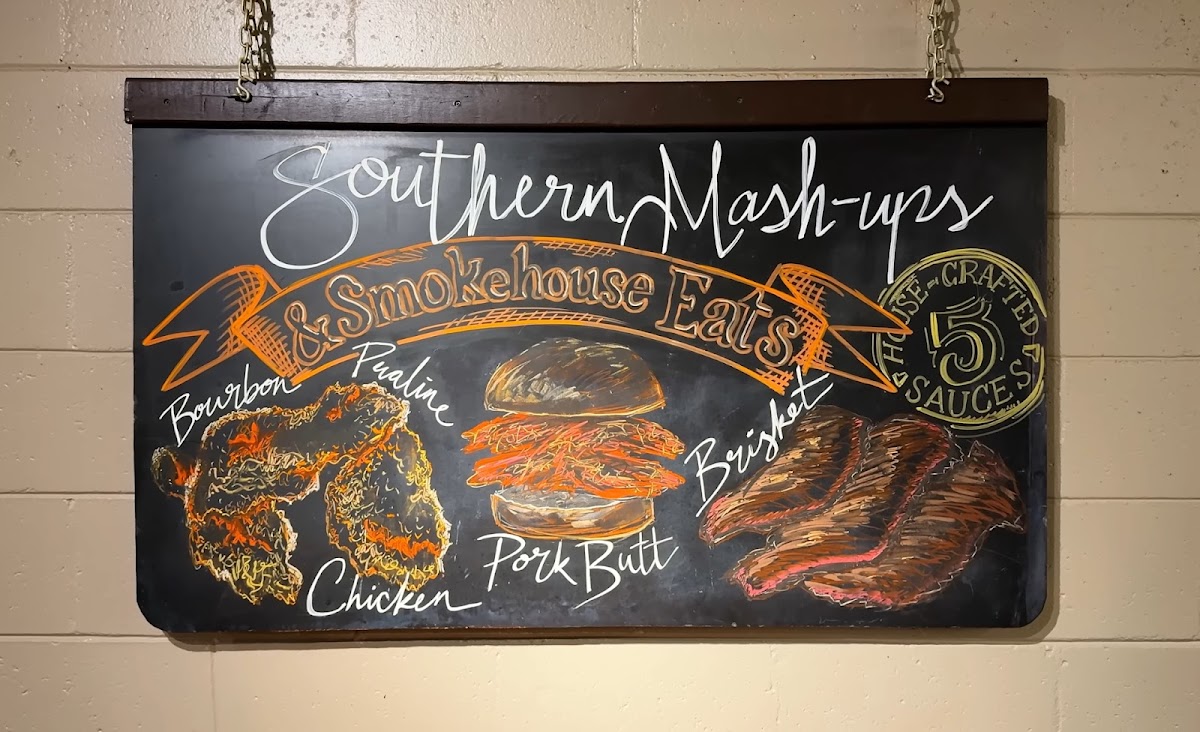 Southern Mash-ups
& Smokehouse Eats
HOUSE-CRAFTED
5
SAUCES
Bourbon
Praline
Chicken
Pork Butt
Brisket